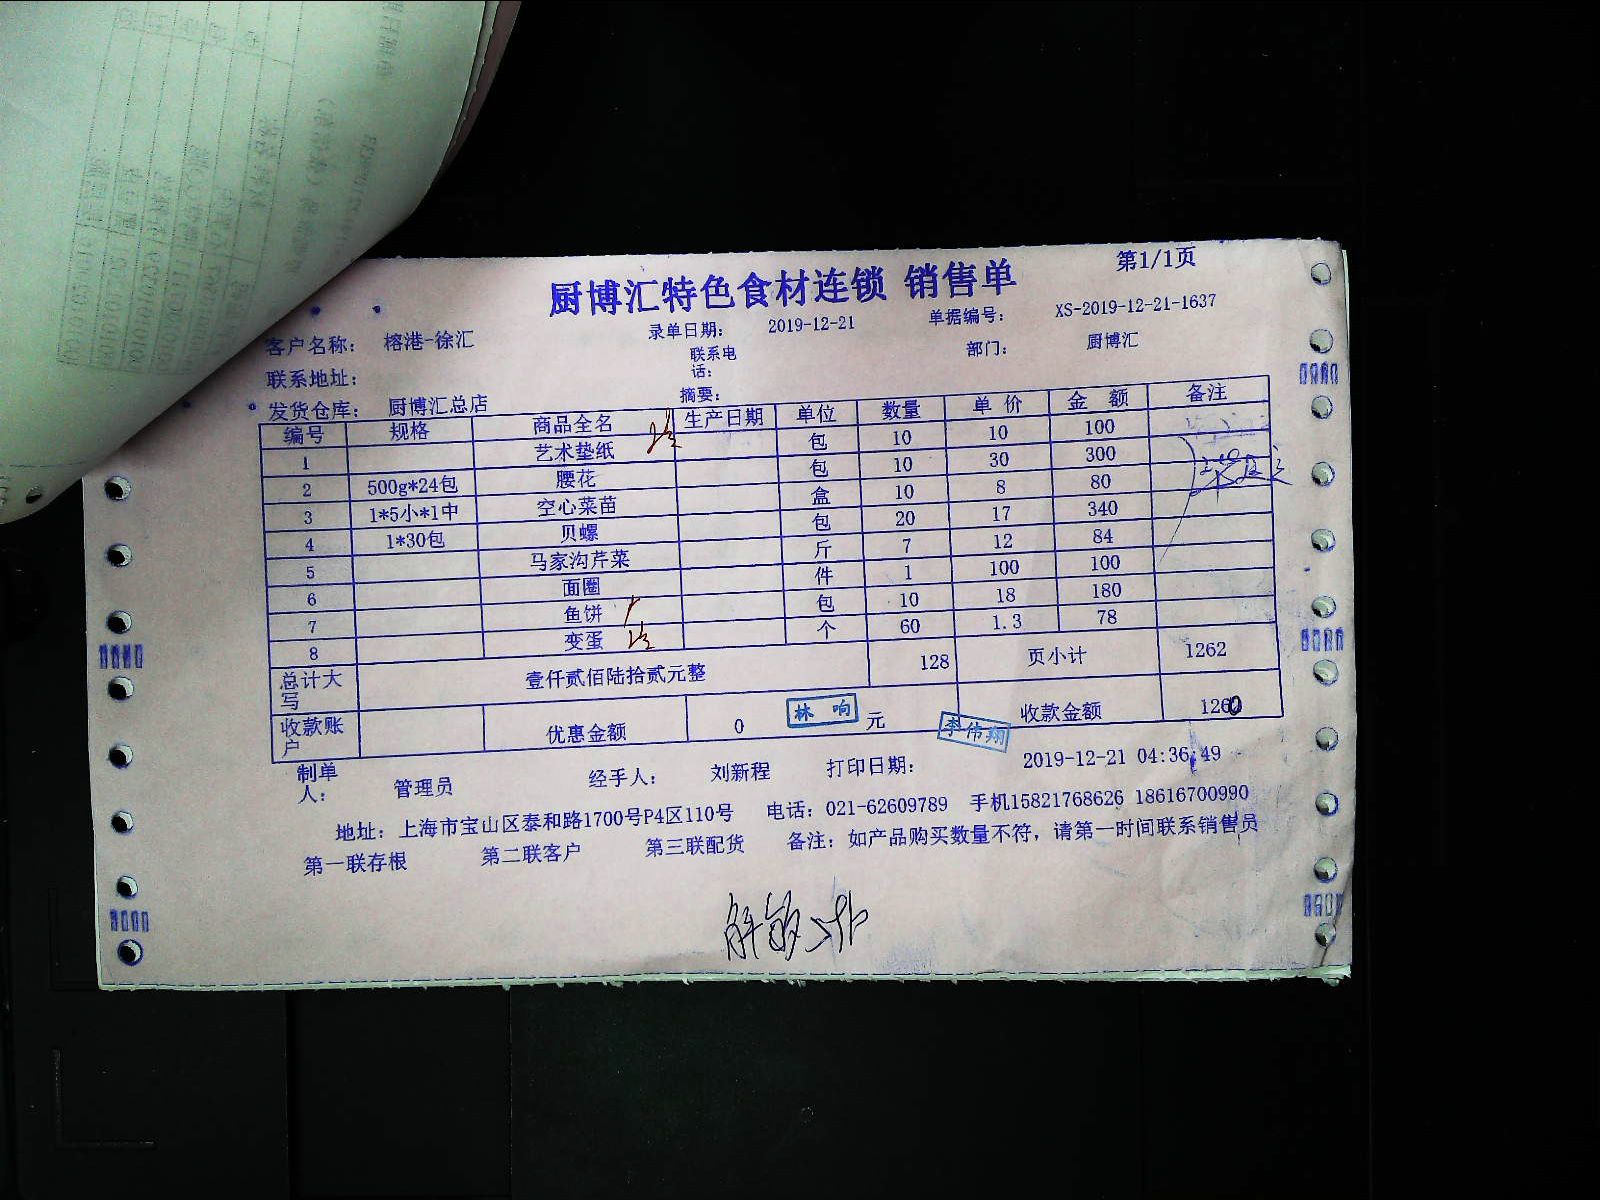 厨博汇特色食材连锁 销售单
第1/1页
客户名称： 榕港-徐汇 录单日期： 2019-12-21 单据编号： XS-2019-12-21-1637
联系地址： 联系电话： 部门： 厨博汇
发货仓库： 厨博汇总店 摘要：
编号 规格 商品全名 生产日期 单位 数量 单价 金额 备注
1 艺术垫纸 包 10 10 100
2 500g*24包 腰花 包 10 30 300
3 1*5小*1中 空心菜苗 盒 10 8 80
4 1*30包 贝螺 包 20 17 340
5 马家沟芹菜 斤 7 12 84
6 面圈 件 1 100 100
7 鱼饼 包 10 18 180
8 变蛋 个 60 1.3 78
总计大写 壹仟贰佰陆拾贰元整 128 页小计 1262
收款账户 优惠金额 0 元 收款金额 1260
林响
李伟翔
制单人： 管理员 经手人： 刘新程 打印日期： 2019-12-21 04:36:49
地址：上海市宝山区泰和路1700号P4区110号 电话：021-62609789 手机15821768626 18616700990
第一联存根 第二联客户 第三联配货 备注：如产品购买数量不符，请第一时间联系销售员